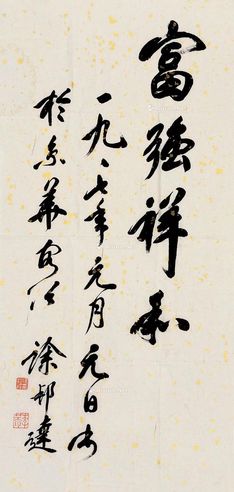 富強祥和
一九八七年元月元日书
於京華客次
徐邦達